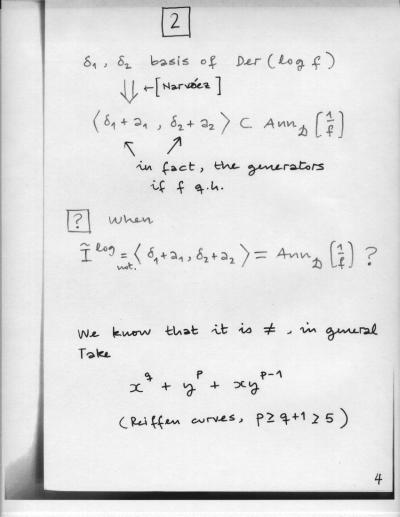 2
δ₁, δ₂ basis of Der (log f)
⇓ ← [Narváez]
⟨δ₁+a₁, δ₂+a₂⟩ ⊂ Ann_D [1/f]
in fact, the generators
if f q.h.
? when
Ĩ^log =_not. ⟨δ₁+a₁, δ₂+a₂⟩ = Ann_D [1/f] ?
We know that it is ≠, in general
Take
x^q + y^p + xy^{p-1}
(Reiffen curves, p ≥ q+1 ≥ 5)
4